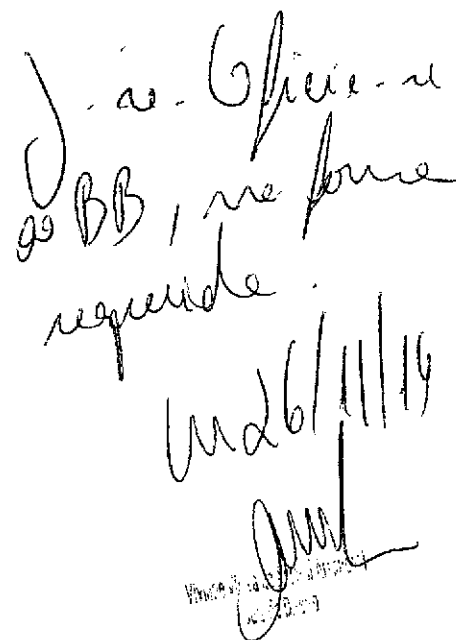 J-se. Oficie-se
ao BB, na forma
requerida.
26/11/14